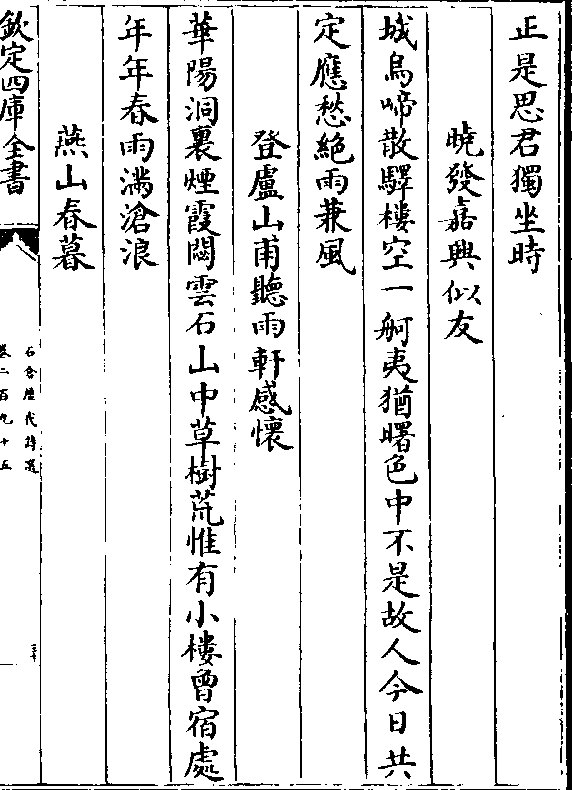 正是思君獨坐時
曉發嘉興似友
城烏啼散驛樓空一舸夷猶曙色中不是故人今日共
定應愁絕雨兼風
登盧山甫聽雨軒感懷
華陽洞裏煙霞閟雲石山中草樹荒惟有小樓曾宿處
年年春雨滿滄浪
燕山春暮
欽定四庫全書
石倉歷代詩選
卷二百九十五